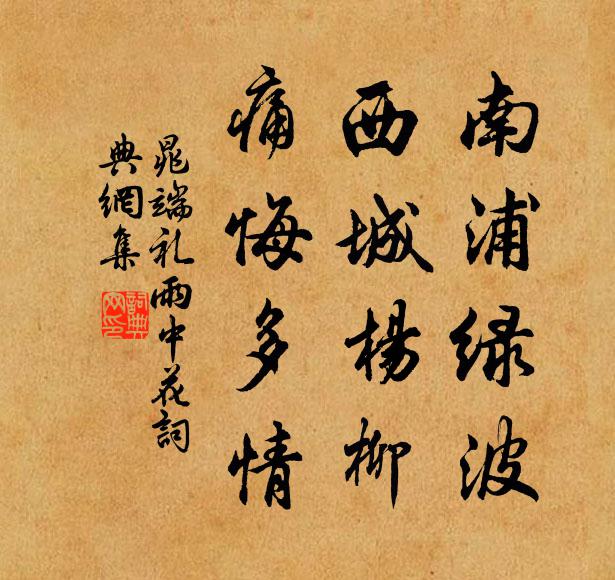 南浦绿波
西城楊柳
痛悔多情
晁端礼雨中花詞
典網集
詞典
网印